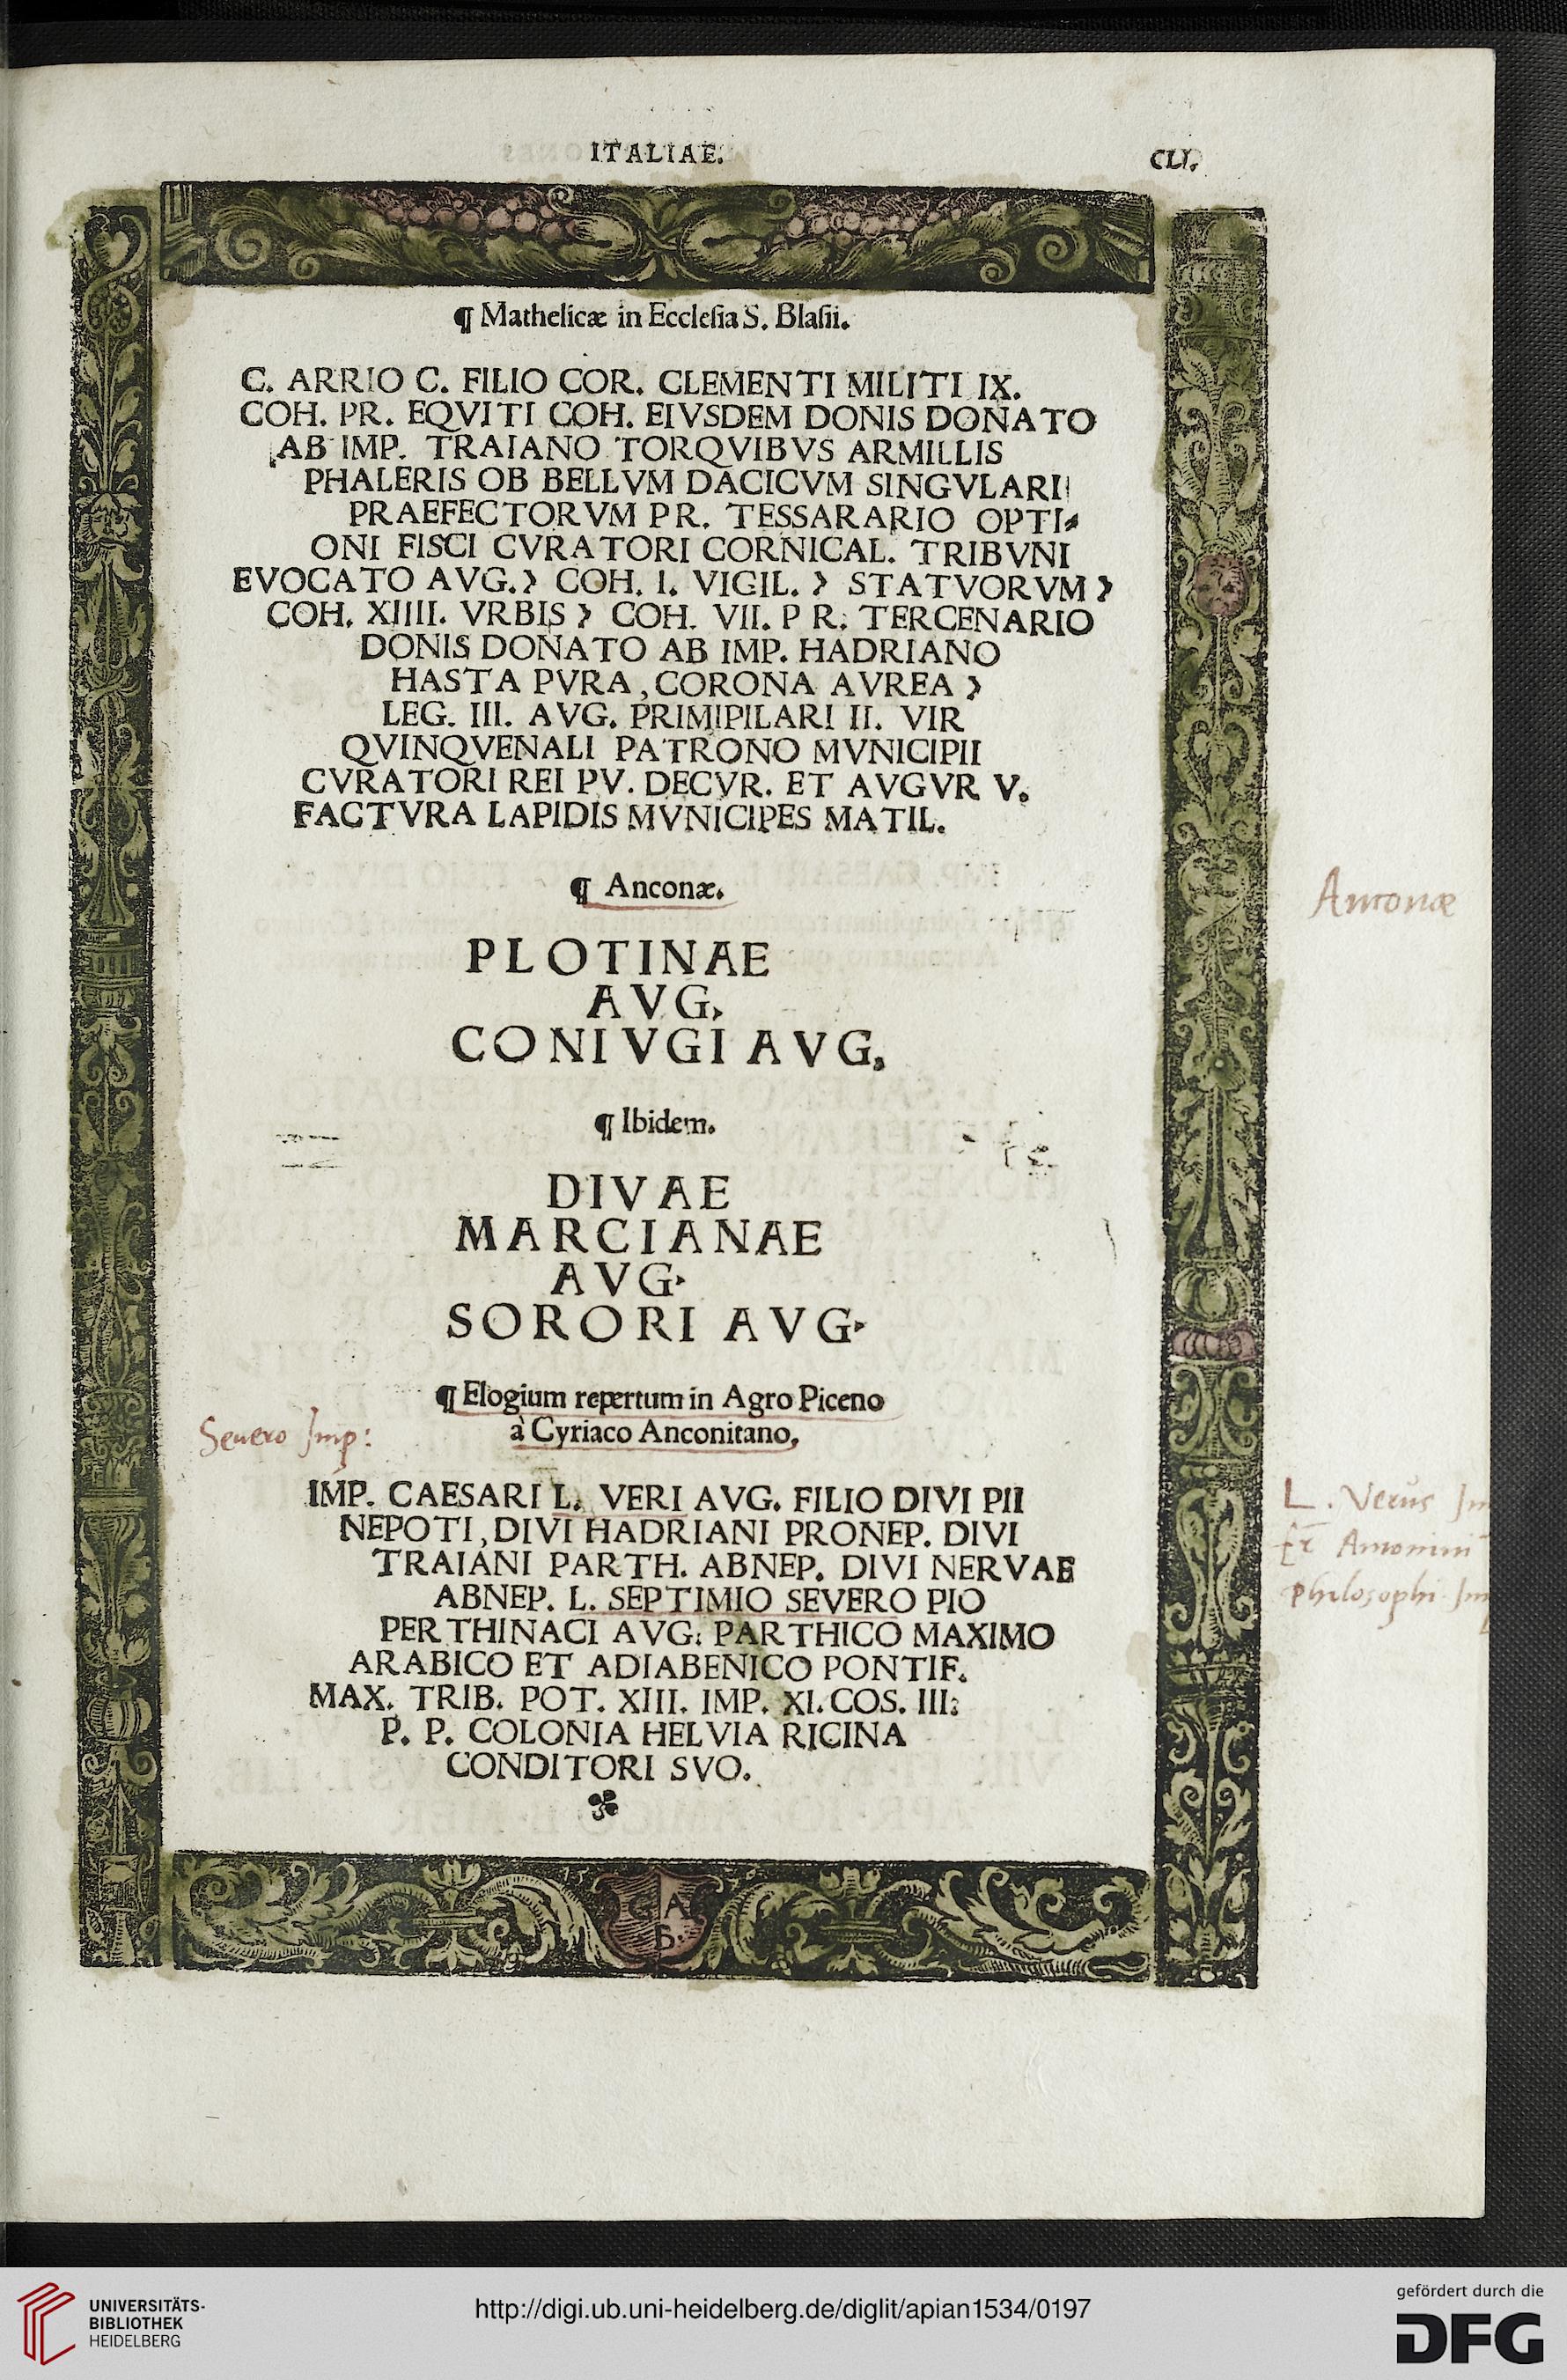 ITALIAE.
CLI.
¶ Mathelicæ in Ecclesia S. Blasii.
C. ARRIO C. FILIO COR. CLEMENTI MILITI IX.
COH. PR. EQVITI COH. EIVSDEM DONIS DONATO
AB IMP. TRAIANO TORQVIBVS ARMILLIS
PHALERIS OB BELLVM DACICVM SINGVLARI
PRAEFECTORVM PR. TESSARARIO OPTI⸗
ONI FISCI CVRATORI CORNICAL. TRIBVNI
EVOCATO AVG. > COH. I. VIGIL. > STATVORVM >
COH. XIIII. VRBIS > COH. VII. P R. TERCENARIO
DONIS DONATO AB IMP. HADRIANO
HASTA PVRA, CORONA AVREA >
LEG. III. AVG. PRIMIPILARI II. VIR
QVINQVENALI PATRONO MVNICIPII
CVRATORI REI PV. DECVR. ET AVGVR V.
FACTVRA LAPIDIS MVNICIPES MATIL.
¶ Anconæ.
Anconæ
PLOTINAE
AVG.
CONIVGI AVG.
¶ Ibidem.
DIVAE
MARCIANAE
AVG.
SORORI AVG.
¶ Elogium repertum in Agro Piceno
à Cyriaco Anconitano.
Seuero Imp:
IMP. CAESARI L. VERI AVG. FILIO DIVI PII
NEPOTI, DIVI HADRIANI PRONEP. DIVI
TRAIANI PARTH. ABNEP. DIVI NERVAE
ABNEP. L. SEPTIMIO SEVERO PIO
PERTHINACI AVG. PARTHICO MAXIMO
ARABICO ET ADIABENICO PONTIF.
MAX. TRIB. POT. XIII. IMP. XI. COS. III.
P. P. COLONIA HELVIA RICINA
CONDITORI SVO.
L. Verus
Antonini
Philosophi
15
G A
B.
UNIVERSITÄTS-
BIBLIOTHEK
HEIDELBERG
http://digi.ub.uni-heidelberg.de/diglit/apian1534/0197
gefördert durch die
DFG